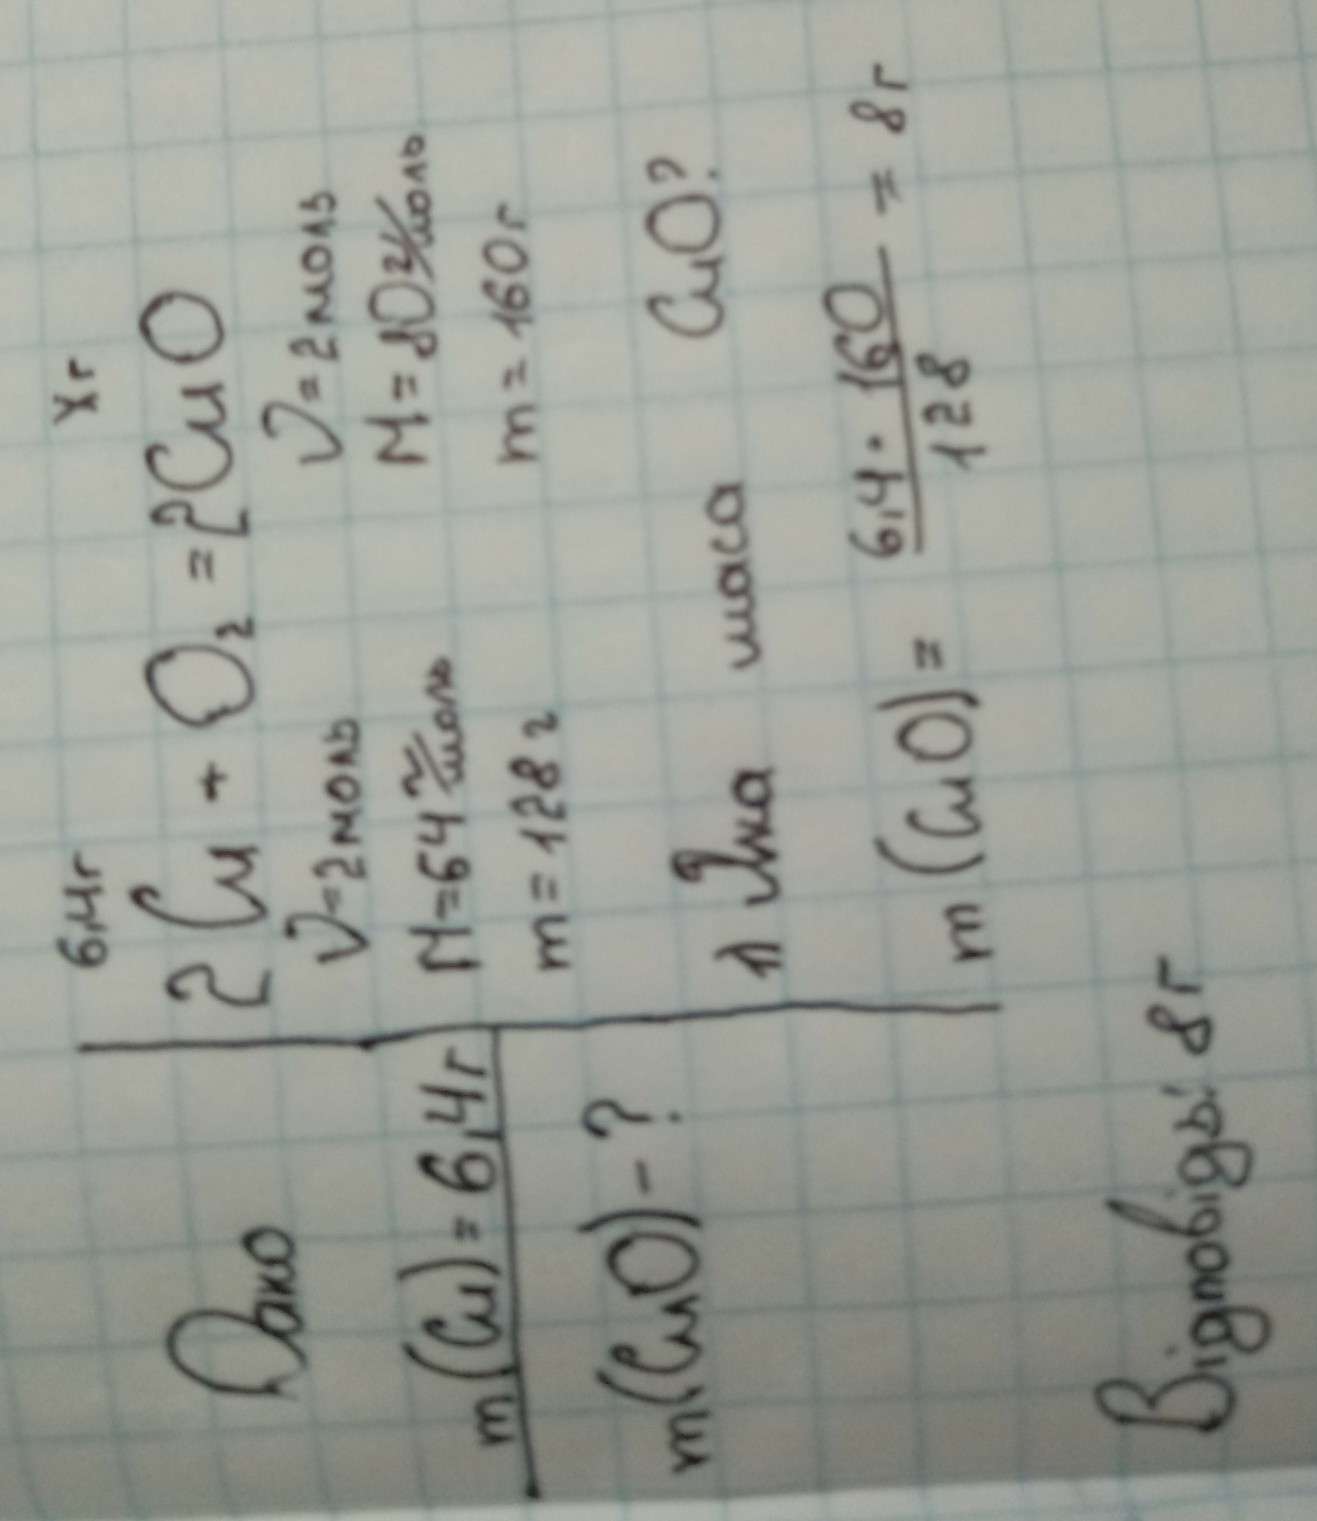 Дано
m(Cu) = 6,4г
m(CuO) - ?
6,4г Xг
2Cu + O₂ = 2CuO
ν=2моль ν=2моль
M=64г/моль M=80г/моль
m=128г m=160г
1) Яка маса CuO?
m(CuO) = 6,4·160/128 = 8г
Відповідь: 8г